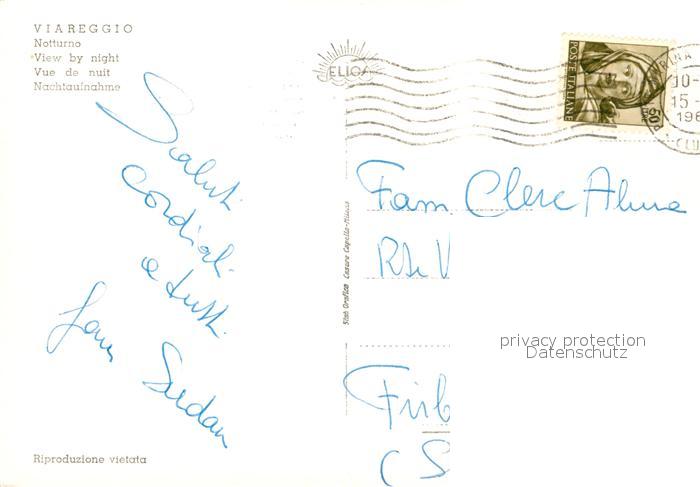 VIAREGGIO
Notturno
View by night
Vue de nuit
Nachtaufnahme
Saluti
cordiali
a tutti
Fam Sudan
ELIOS
POSTE ITALIANE
10-
15
196
Fam Clerc Alma
Rte V
Stab. Grafico Cesare Capello-Milano
privacy protection
Datenschutz
Frib
(S
Riproduzione vietata